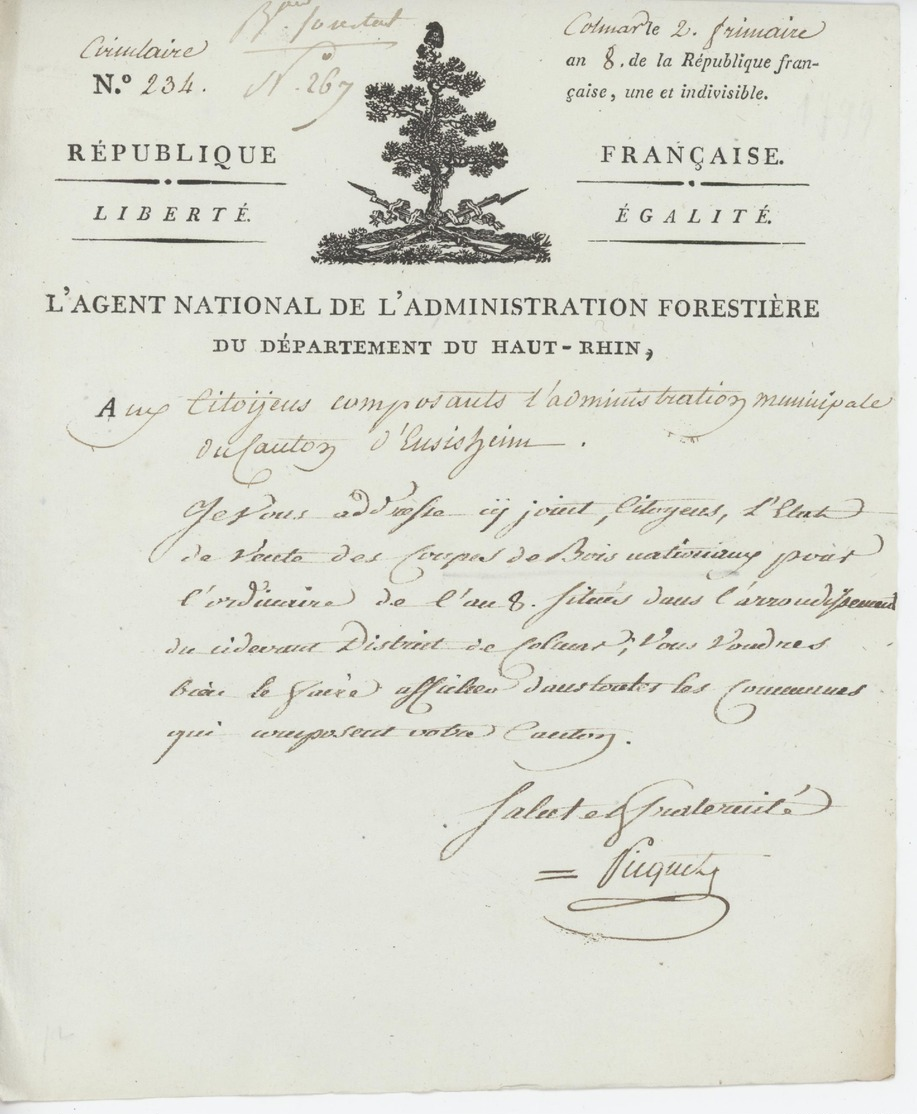 Circulaire
N.º 234.
N.º 267
Colmar le 2. frimaire
an 8. de la République fran-
çaise, une et indivisible.
RÉPUBLIQUE FRANÇAISE.
LIBERTÉ. ÉGALITÉ.
L'AGENT NATIONAL DE L'ADMINISTRATION FORESTIÈRE
DU DÉPARTEMENT DU HAUT-RHIN,
Aux Citoÿens composants l'administration municipale
du Canton d'Ensisheim.
Je vous addresse cÿ joint, Citoyens, l'Etat
de Vente des Coupes de Bois nationaux pour
l'ordinaire de l'an 8. situés dans l'arrondissement
du cidevant District de Colmar; Vous Voudres
bien le faire afficher dans toutes les Communes
qui composent votre Canton.
Salut et fraternité
= Picquet